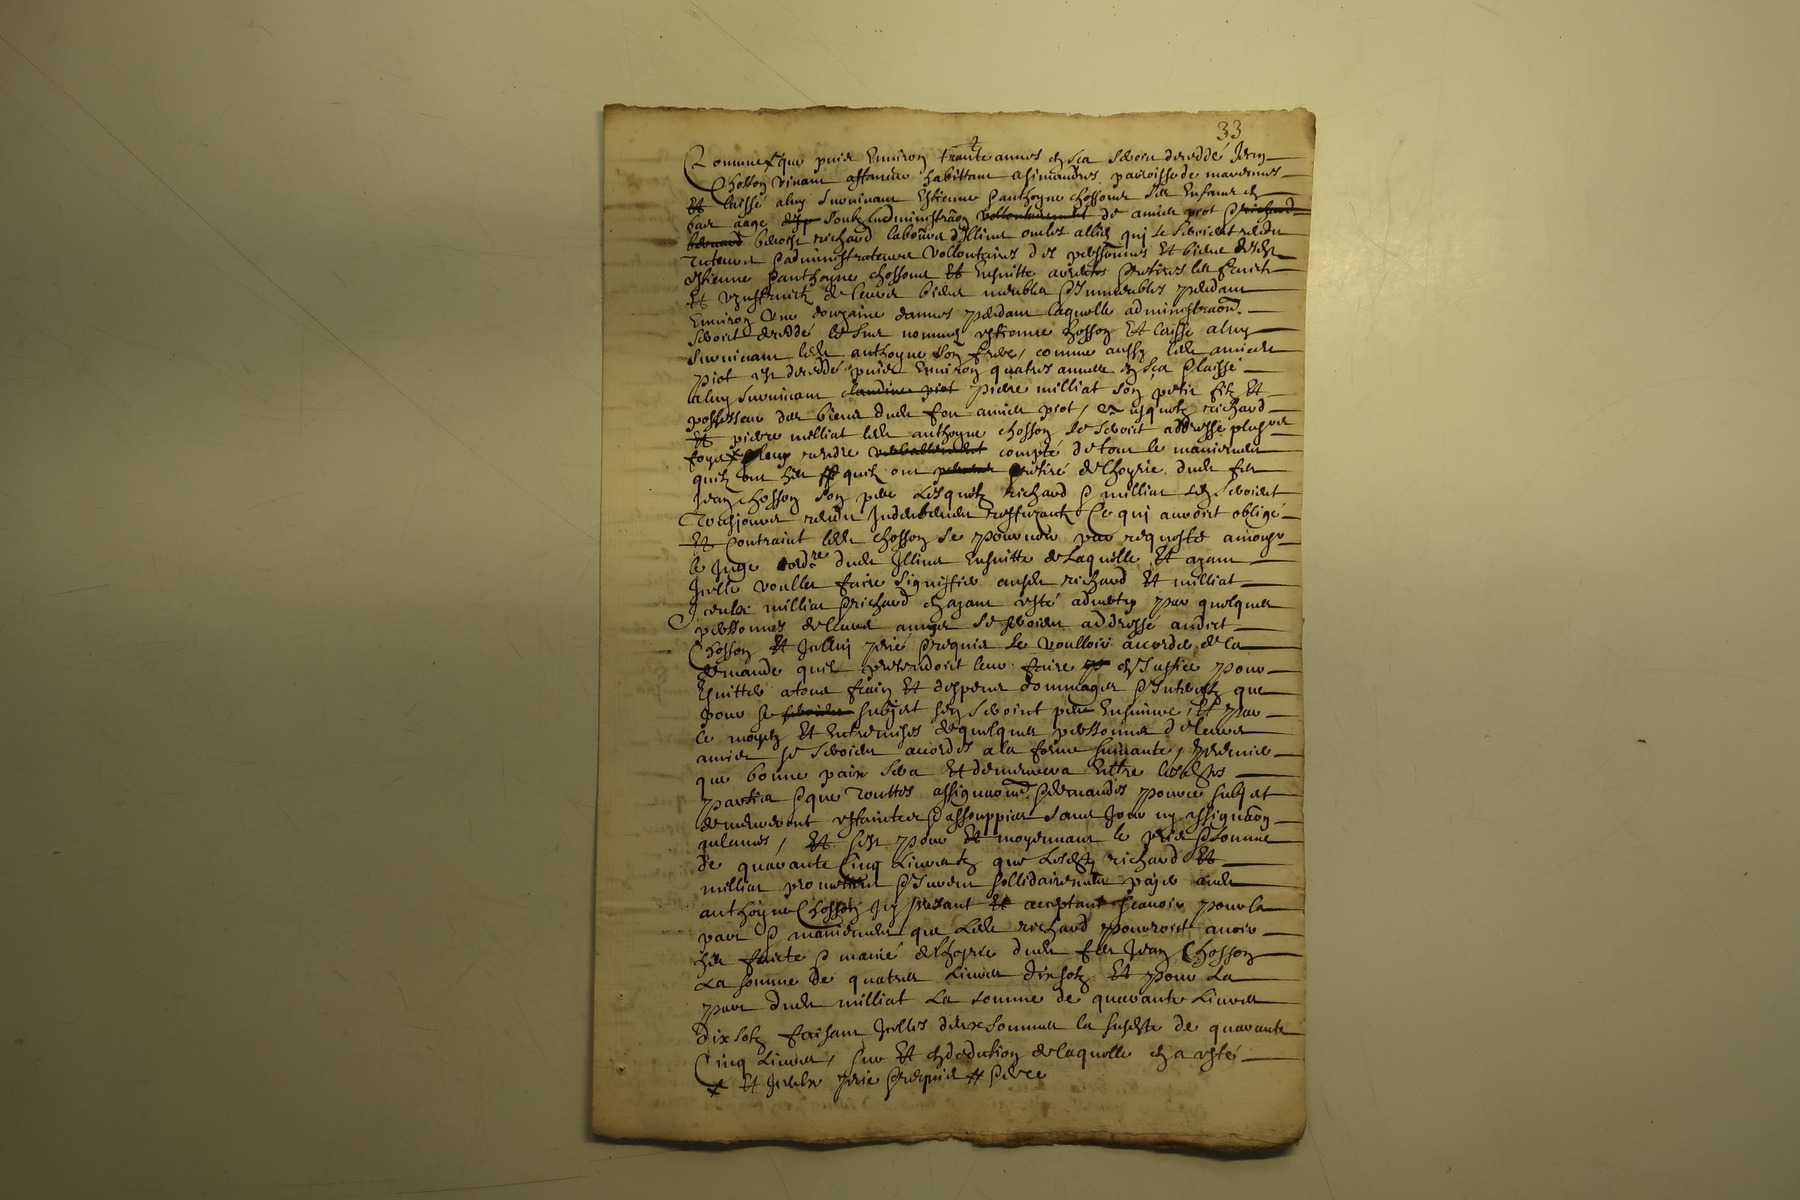 33
Comme que puis Environ trante annes en sca seroit deceddé Jean
Chosson vivant affaneur habittant a Simandres parroisse de marennes
Et laissé a luy survivant Estienne & anthoyne chossons ses Enfans en
bas aage soubz ladministraon vollontairement de amied piot & richard
benoist richard laboureur dIllins oncles allies qui se seroient rendu
tuteurs & administrateurs vollontaires des personnes Et biens desdz
Estienne & anthoyne chossons Et Ensuitte & retires les fruictz
Et Uzuffruictz de leurs biens meubles & Immeubles pendant
Environ une douzaine dannes pendant laquelle administraon
seroit deceddé le sus nommé Estienne chosson Et laissé a luy
survivant ledt anthoyne son frere, comme aussy ledt amied
piot est deceddé puis Environ quatres annees en sça & laissé
a luy survivant claudine piot pierre milliat son petit filz Et
possesseur des biens dudt feu amied piot, & richard
Et pierre milliat ledt anthoyne chosson se seroit addressé plusrs
foys pour rendre verballement compte de tout le maniement
quilz ont heu & quilz ont retiré de lhoyrie dudt feu
Jean chosson son pere Lesquelz richard & milliat sen seroient
Tousjours rendu reffuzantz Ce qui auroit obligé
Et Contraint ledt chosson se pourvoir par requeste
le Juge ordre dudt Illins Ensuitte de Laquelle Et ayant
Icelle voullu faire signiffier ausdt richard Et milliat
Iceulx milliat & richard en ayant esté adverty par quelques
personnes de leurs amys se seroient addressé audict
Chosson Et Icelluy prié & requis Le voulloir accorder de la
demande quil pretendoit leur faire en Justice pour
Esvitter a tous fraiz Et despens dommages & Interestz que
pour se subject sen seroint peu Ensuivre, Et par
le moyen Et Entremises de quelques personnes de leurs
amis se seroient accordés a la forme suivante, premier
que bonne paix sera Et demeurera Entre lesdites
parties & que touttes assignaons & demandes pour ce subject
demeureront estaintes & assouppies sans Jour ny assignaon
aulcunes, Et sest pour Et moyennant le prix & somme
de quarante Cinq Livres tz que Lesdtz richard Et
milliat promettent & Jurent sollidairement payer audt
anthoyne Chosson Icy present Et acceptant scavoir pour la
part & maniement que Ledt richard pourroict avoir
heu faicte & manié de lhoyrie dudt feu Jean Chosson
La somme de quatres Livres dix solz Et pour La
part dudt milliat La somme de quarante Livres
dix solz faisant Icelles deux sommes la susdite de quarante
Cinq Livres, sur Et en deduction de laquelle en a esté
Et Iceulx prié & requis